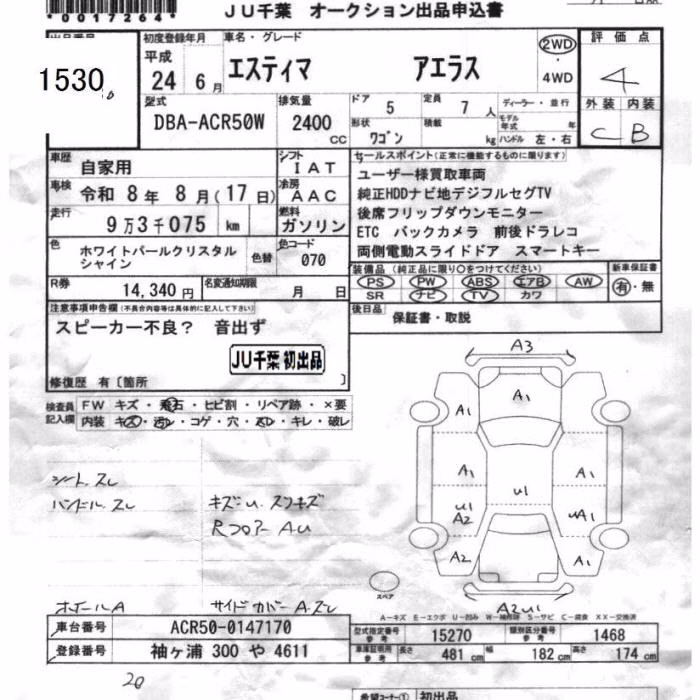 *0017264*
JU千葉 オークション出品申込書
1530
初度登録年月
平成
24 6月
車名・グレード
エスティマ アエラス
2WD
4WD
評価点
4
外装 内装
C B
型式
DBA-ACR50W
排気量
2400 CC
ドア 5
定員 7人
形状 ワゴン
積載 kg
ディーラー・並行
モデル年式 年
ハンドル 左・右
車歴 自家用
シフト IAT
車検 令和 8年 8月(17日)
冷房 AAC
走行 9万3千075 km
燃料 ガソリン
色 ホワイトパールクリスタルシャイン
色替
色コード 070
R券 14,340円
名変通知期限 月 日
セールスポイント(正常に機能するものに限ります)
ユーザー様買取車両
純正HDDナビ地デジフルセグTV
後席フリップダウンモニター
ETC バックカメラ 前後ドラレコ
両側電動スライドドア スマートキー
装備品(純正品に限り○をつけてください)
PS PW ABS エアB AW
SR ナビ TV カワ
新車保証書
有・無
後日品 保証書・取説
注意事項申告欄(不具合内容等は具体的に記入して下さい)
スピーカー不良? 音出ず
JU千葉 初出品
修復歴 有〔箇所 〕
検査員記入欄
FW キズ・飛石・ヒビ割・リペア跡・×要
内装 キズ・汚レ・コゲ・穴・スレ・キレ・破レ
シート スレ
ハンドル スレ
キズU スリキズ
RフロアーAU
ホイールA
サイドカバーA・スレ
A3
A1
A1
A1 A1
U1
U1 A2
UA1
A2
A1
A2U1
スペア
A-キズ E-エクボ U-凹み W-補修跡 S-サビ C-腐食 XX-交換済
車台番号 ACR50-0147170
登録番号 袖ヶ浦 300 や 4611
型式指定番号 参考 15270
類別区分番号 参考 1468
車庫証明用 参考 長さ 481 cm 幅 182 cm 高さ 174 cm
20
希望コーナー① 初出品